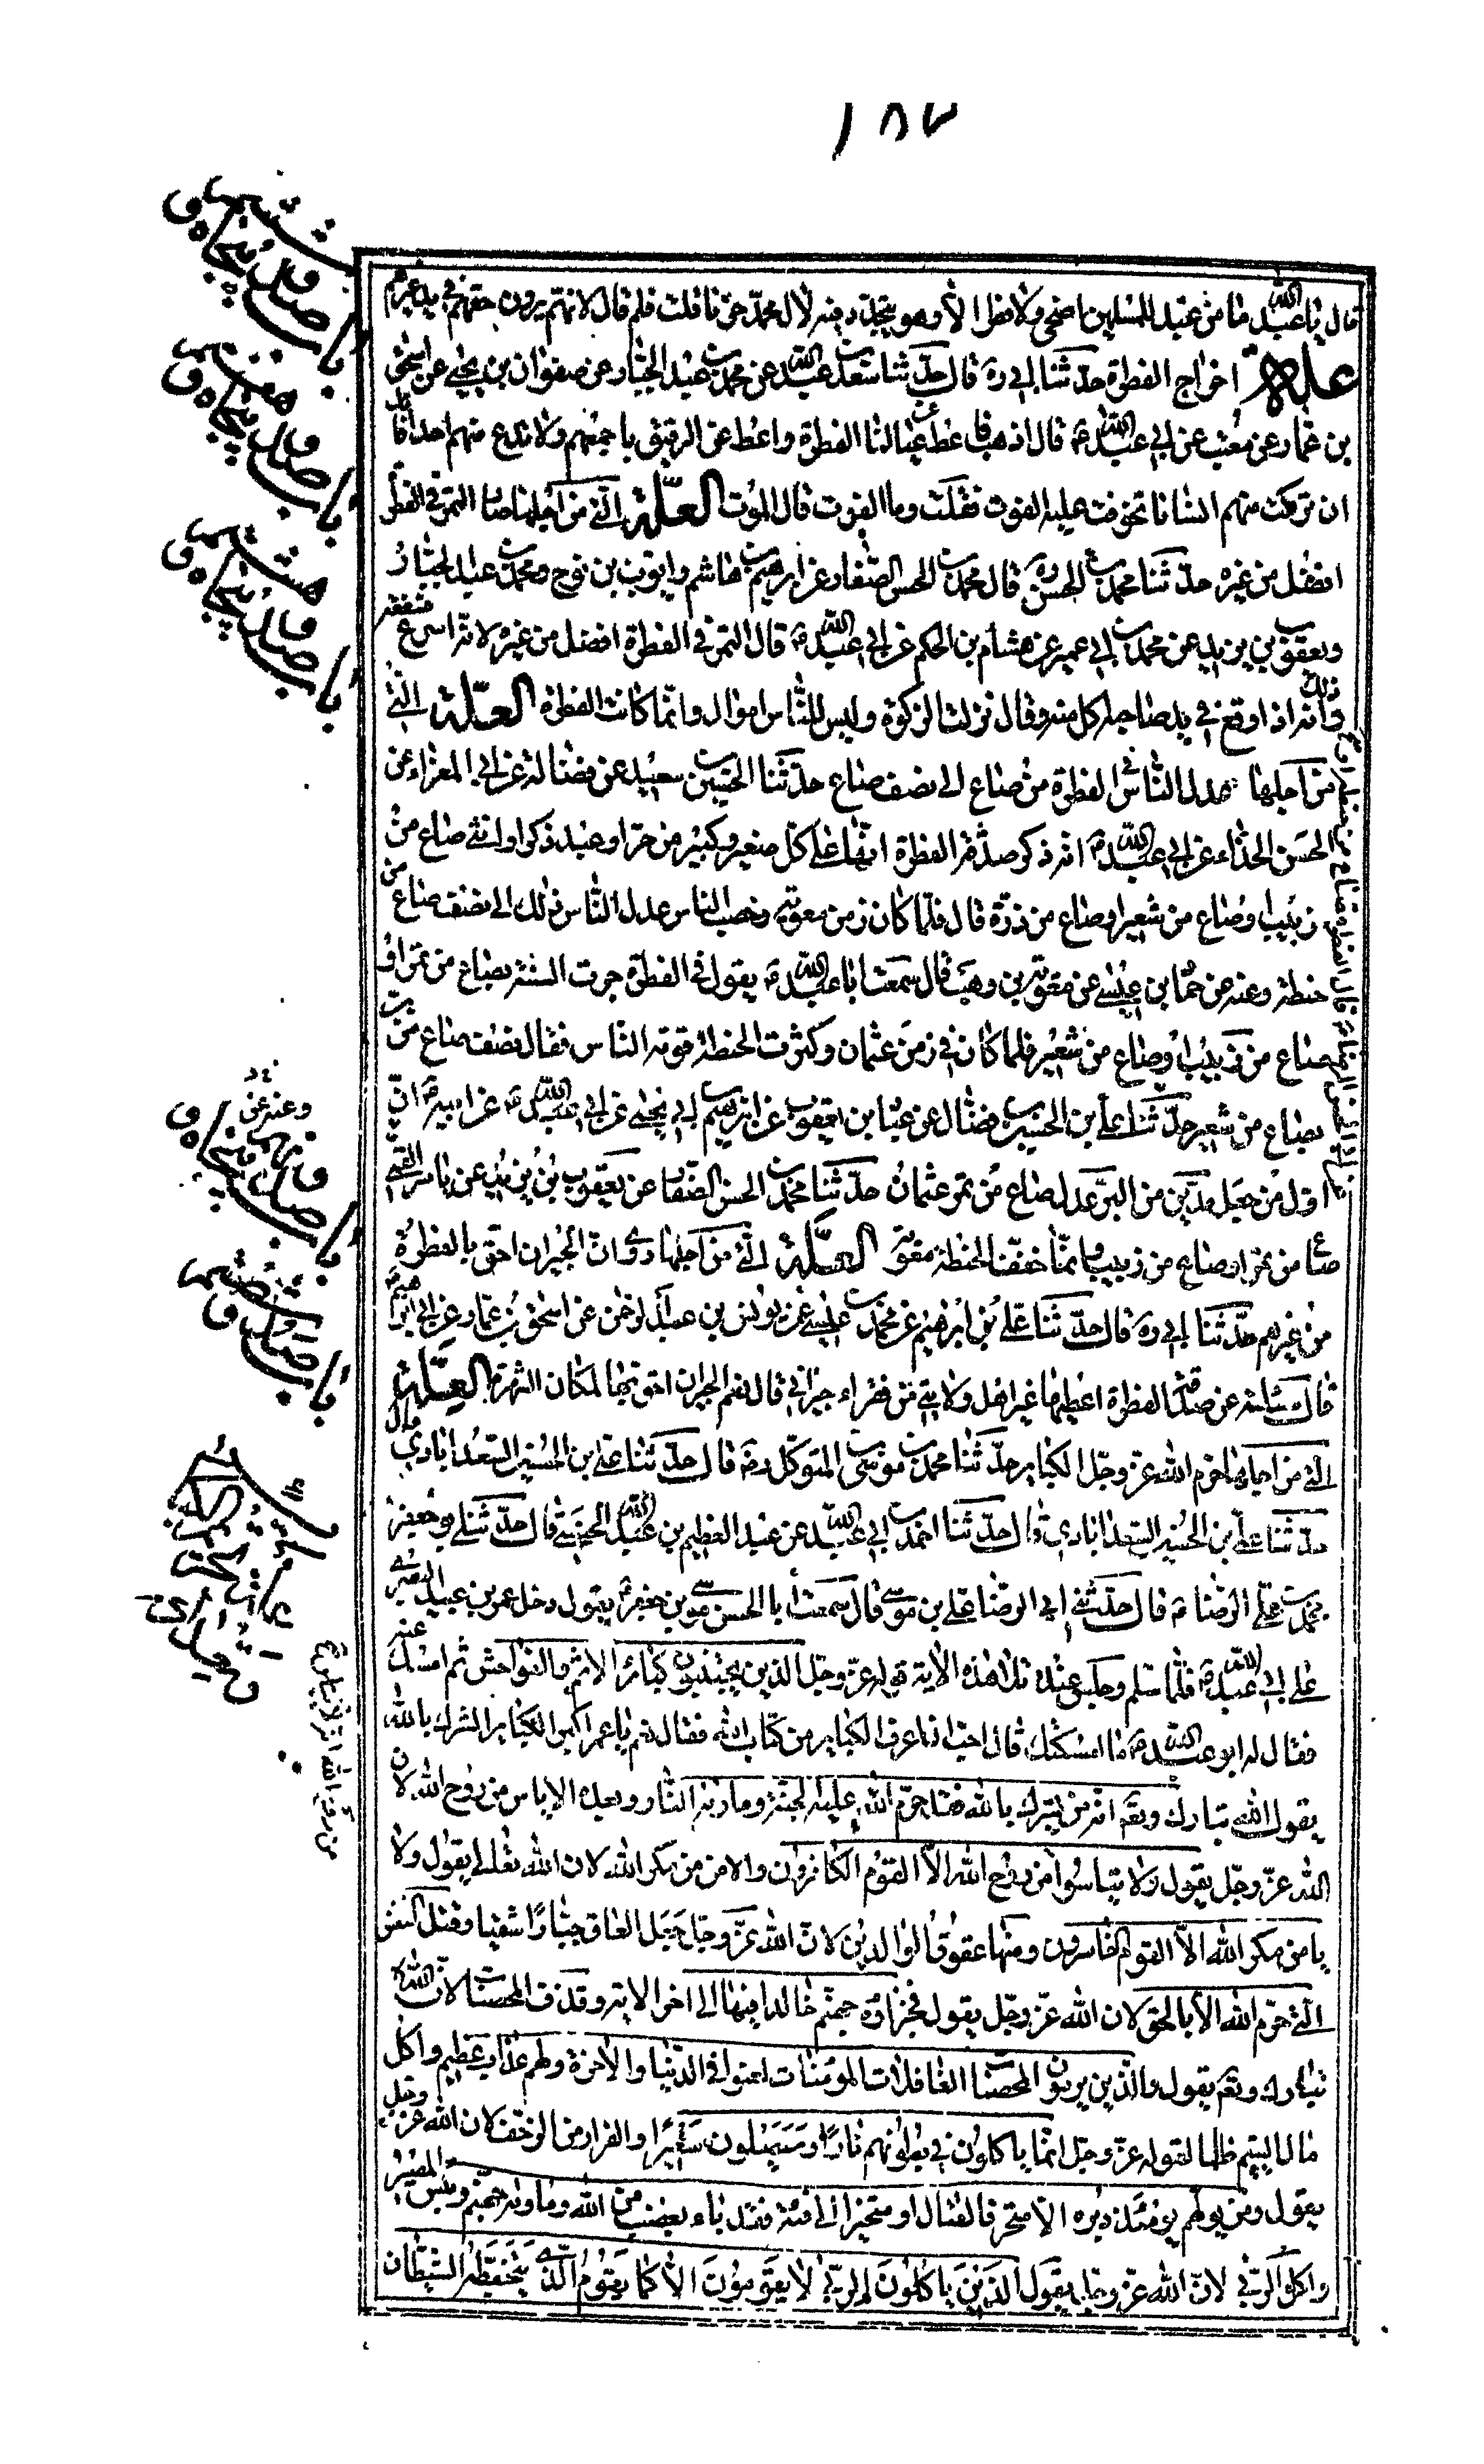 ۱۸۷
قال يا عبد الله ما من عيد للمسلمين اضحى ولا فطر الا وهو يتجدد فيه لال محمد حزنا قلت فلم قال لانهم يرون حقهم في يد غيرهم
علة اخراج الفطرة حدثنا ابي ره قال حدثنا سعد بن عبد الله عن محمد بن عبد الجبار عن صفوان بن يحيى عن اسحق
بن عمار عن معتب عن ابي عبد الله ع قال اذهب فاعط عن عيالنا الفطرة واعط عن الرقيق باجمعهم ولا تدع منهم احدا فانك
ان تركت منهم انسانا تخوفت عليه الفوت فقلت وما الفوت قال الموت العلة التي من اجلها صار التمر في الفطرة
افضل من غيره حدثنا محمد بن الحسن ره قال محمد بن الحسن الصفار عن ابرهيم بن هاشم وايوب بن نوح ومحمد بن عبد الجبار
ويعقوب بن يزيد عن محمد بن ابي عمير عن هشام بن الحكم عن ابي عبد الله ع قال التمر في الفطرة افضل من غيره لانه اسرع منفعة
وذلك انه اذا وقع في يد صاحبه اكل منه وقال نزلت الزكوة وليس للناس اموال وانما كانت الفطرة العلة التي
من اجلها عدل الناس في الفطرة من صاع الى نصف صاع حدثنا الحسين بن سعيد عن فضالة عن ابي المعزاء عن
الحسن الحذاء عن ابي عبد الله ع انه ذكر صدقة الفطرة انها على كل صغير وكبير من حر او عبد ذكر او انثى صاع من
زبيب او صاع من شعير او صاع من ذرة قال فلما كان زمن معوية وخصب الناس عدل الناس ذلك الى نصف صاع من
حنطة وعنه عن حماد بن عيسى عن معوية بن وهب قال سمعت ابا عبد الله ع يقول في الفطرة جرت السنة بصاع من تمر او
صاع من زبيب او صاع من شعير فلما كان في زمن عثمان وكثرت الحنطة قومه الناس فقال نصف صاع من بر
بصاع من شعير حدثنا علي بن الحسين بن فضال عن عباد بن يعقوب عن ابرهيم بن ابي يحيى عن ابي عبد الله ع عن ابيه ع ان
اول من جعل مدين من البر عدل صاع من تمر عثمان حدثنا محمد بن الحسن الصفار عن يعقوب بن يزيد عن ياسر القمي
صاع من تمر او صاع من زبيب وانما خفف الحنطة معوية العلة التي من اجلها روى ان الجيران احق بالفطرة
من غيرهم حدثنا ابي ره قال حدثنا علي بن ابرهيم عن محمد بن عيسى عن يونس بن عبد الرحمن عن اسحق بن عمار عن ابي ابرهيم
قال سالته عن صدقة الفطرة اعطيها غير اهل ولايتي من فقراء جيراني قال نعم الجيران احق بها لمكان الشهرة العلة
التي من اجلها حرم الله عز وجل الكباير حدثنا محمد بن موسى بن المتوكل رضه قال حدثنا علي بن الحسين السعد ابادي قال
حدثنا علي بن الحسين السعد ابادي قال حدثنا احمد بن ابي عبد الله عن عبد العظيم بن عبد الله الحسني قال حدثني ابو جعفر
محمد بن علي الرضا ع قال حدثني ابي الرضا علي بن موسى قال سمعت ابا الحسن موسى بن جعفر ع يقول دخل عمرو بن عبيد البصري
على ابي عبد الله ع فلما سلم وجلس عنده تلا هذه الاية قوله عز وجل الذين يجتنبون كبائر الاثم والفواحش ثم امسك عنه
فقال له ابو عبد الله ع ما امسكتك قال احب ان اعرف الكباير من كتاب الله فقال نعم يا عمرو اكبر الكباير الشرك بالله
يقول الله تبارك وتع انه من يشرك بالله فقد حرم الله عليه الجنة وماويه النار وبعده الاياس من روح الله لان
الله عز وجل يقول ولا تيأسوا من روح الله الا القوم الكافرون والامن من مكر الله لان الله تعالى يقول ولا
يامن مكر الله الا القوم الخاسرون ومنها عقوق الوالدين لان الله عز وجل جعل العاق جبارا شقيا وقتل النفس
التي حرم الله الا بالحق لان الله عز وجل يقول فجزاؤه جهنم خالدا فيها الى اخر الاية وقذف المحصنات لان الله
تبارك وتع يقول والذين يرمون المحصنات الغافلات المؤمنات لعنوا في الدنيا والاخرة ولهم عذاب عظيم واكل
مال اليتيم ظلما لقوله عز وجل انما ياكلون في بطونهم نارا وسيصلون سعيرا والفرار من الزحف لان الله عز وجل
يقول ومن يولهم يومئذ دبره الا متحرفا لقتال او متحيزا الى فئة فقد باء بغضب من الله وماويه جهنم وبئس المصير
واكل الربى لان الله عز وجل يقول الذين ياكلون الربى لا يقومون الا كما يقوم الذي يتخبطه الشيطان
باب صد و پنجاه و ششم
باب صد و پنجاه و هفتم
باب صد و پنجاه و هشتم
وعنه عن
باب صد و پنجاه و نهم
باب صد و شصتم